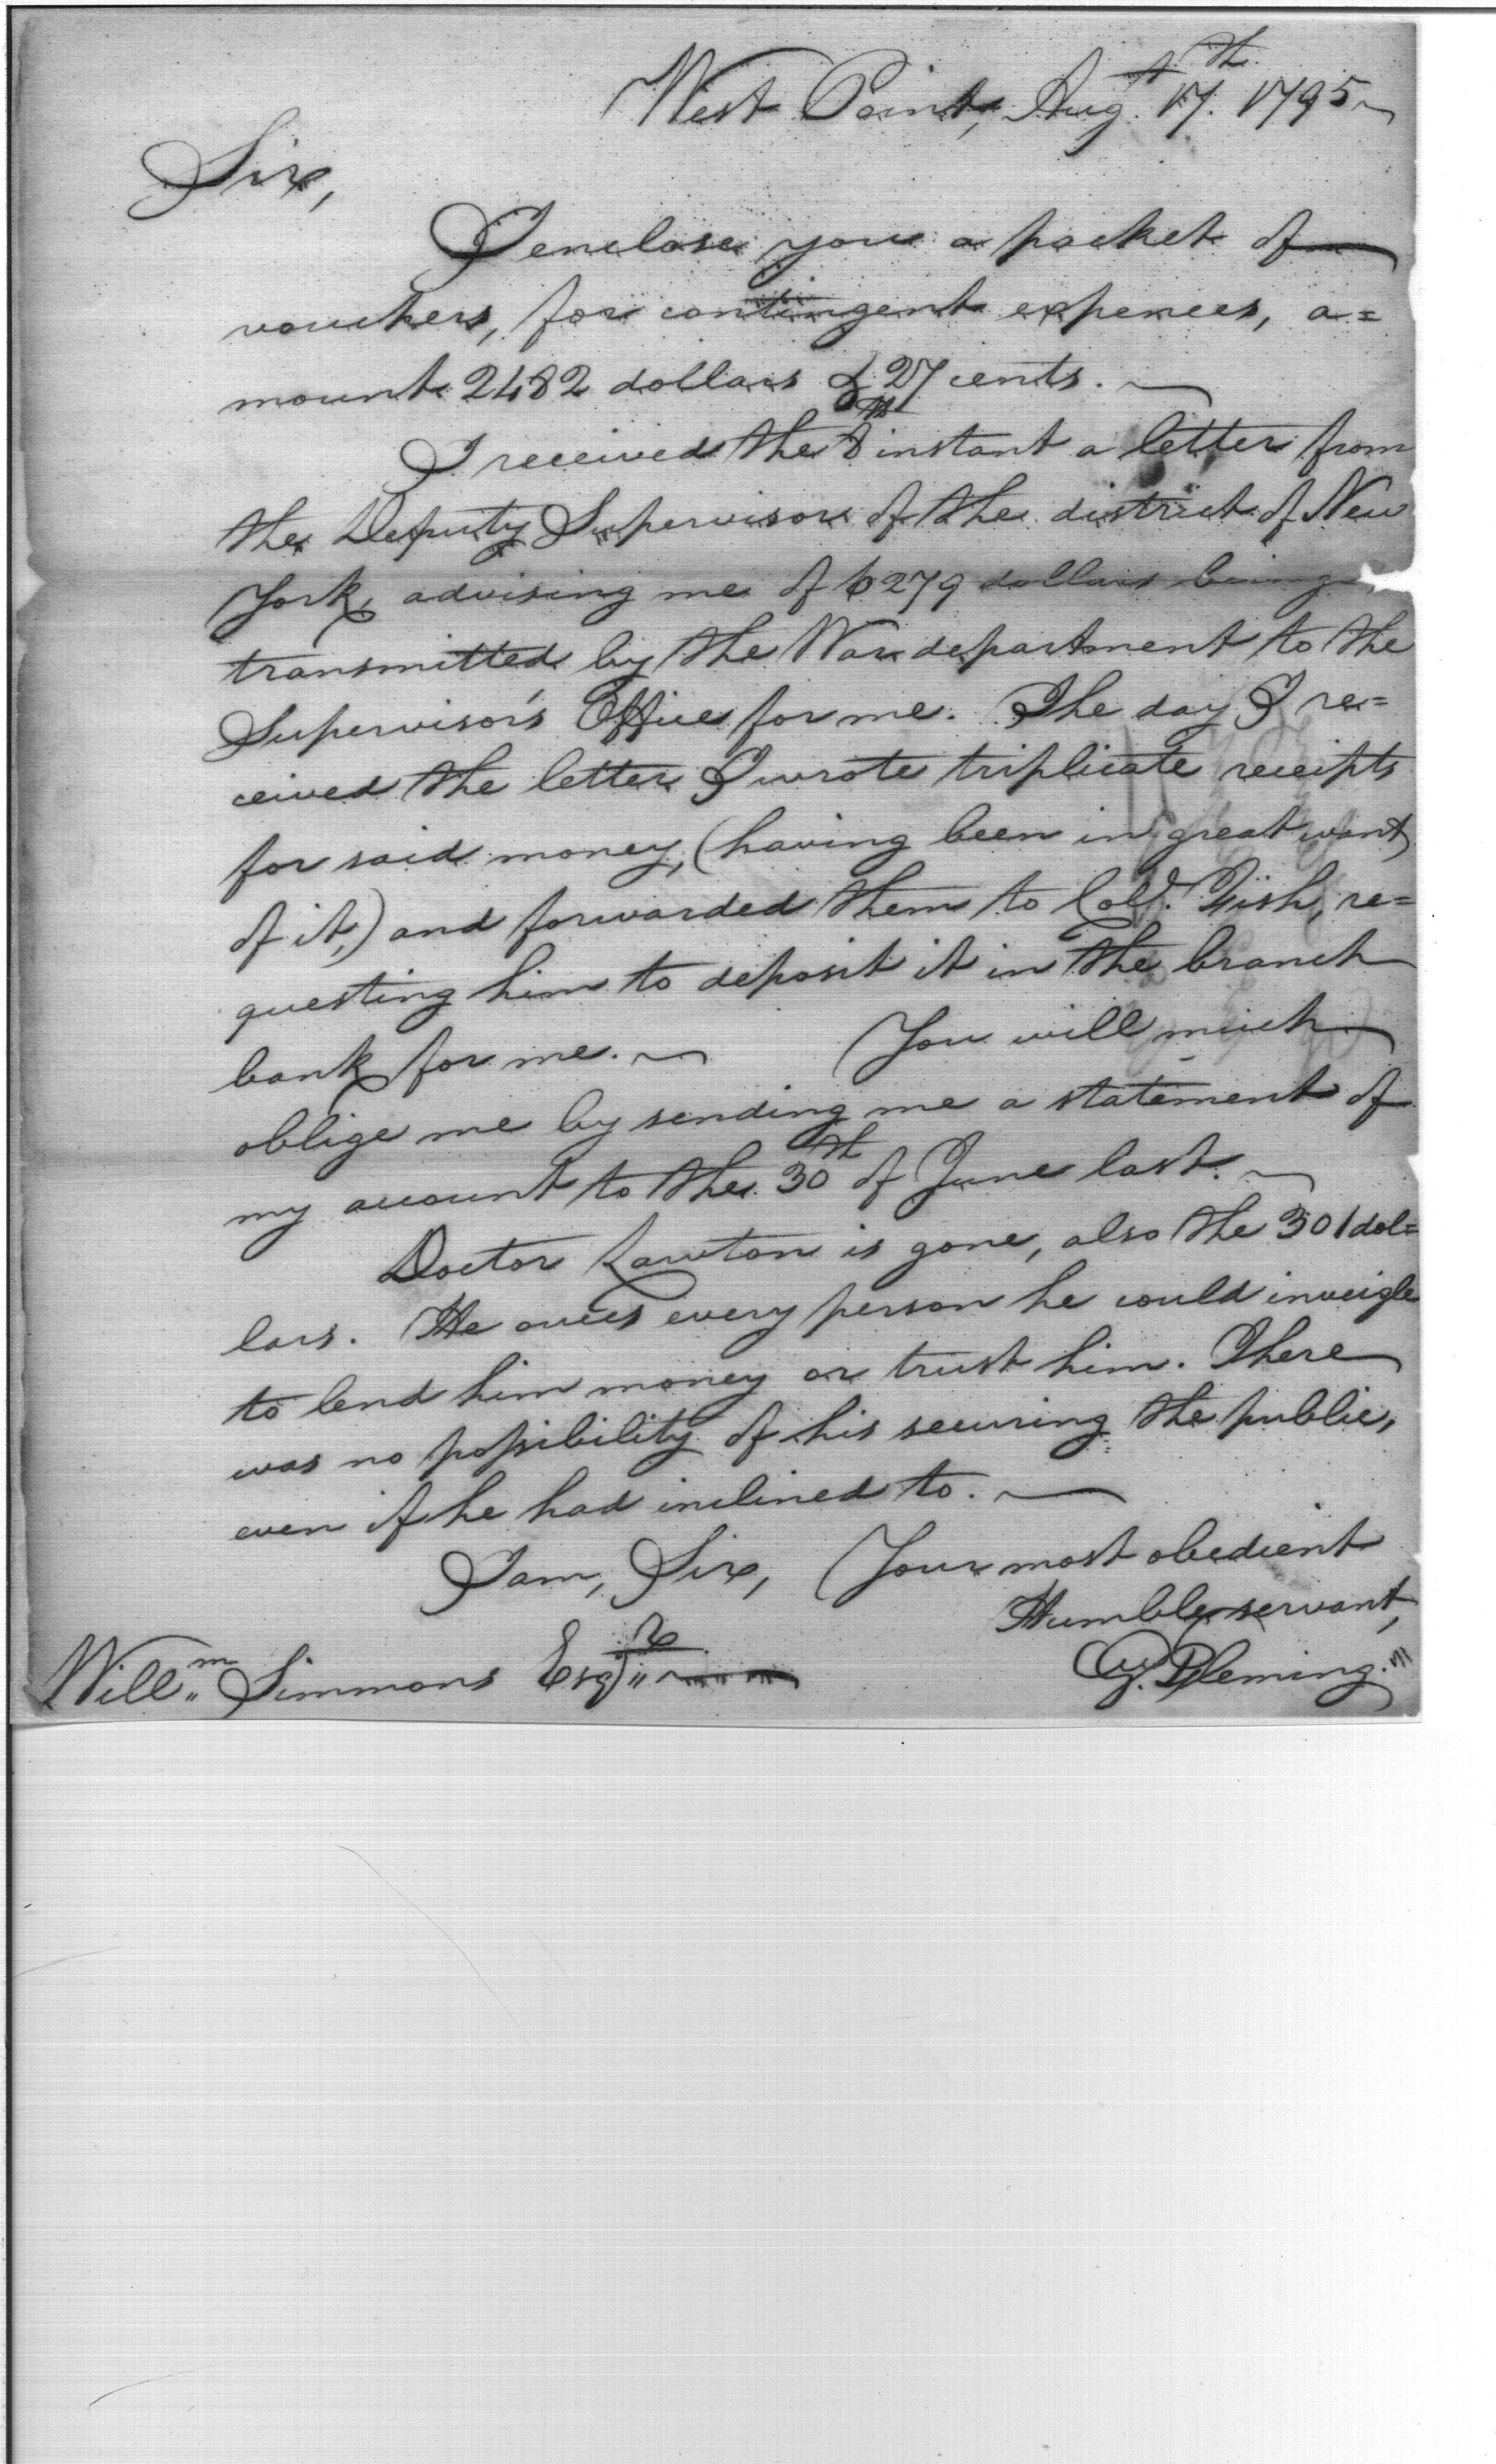 West Point, Augt. 17th. 1795
Sir,
I enclose you a packet of
vouchers, for contingent expences, a=
mount 2482 dollars & 27 cents.
I received the 8th instant a letter from
the Deputy Supervisor of the district of New
York, advising me of 6279 dollars being
transmitted by the War department to the
Supervisor's Office for me. The day I re=
ceived the letter I wrote triplicate receipts
for said money, (having been in great want
of it,) and forwarded them to Coll. Fish, re=
questing him to deposit it in the branch
bank for me. You will much
oblige me by sending me a statement of
my account to the 30th of June last.
Doctor Lawton is gone, also the 301 dol=
lars. He owes every person he could inveigle
to lend him money or trust him. There
was no possibility of his securing the public,
even if he had inclined to.
I am, Sir, Your most obedient
Humble servant,
G. Fleming
Willm. Simmons Esqr.